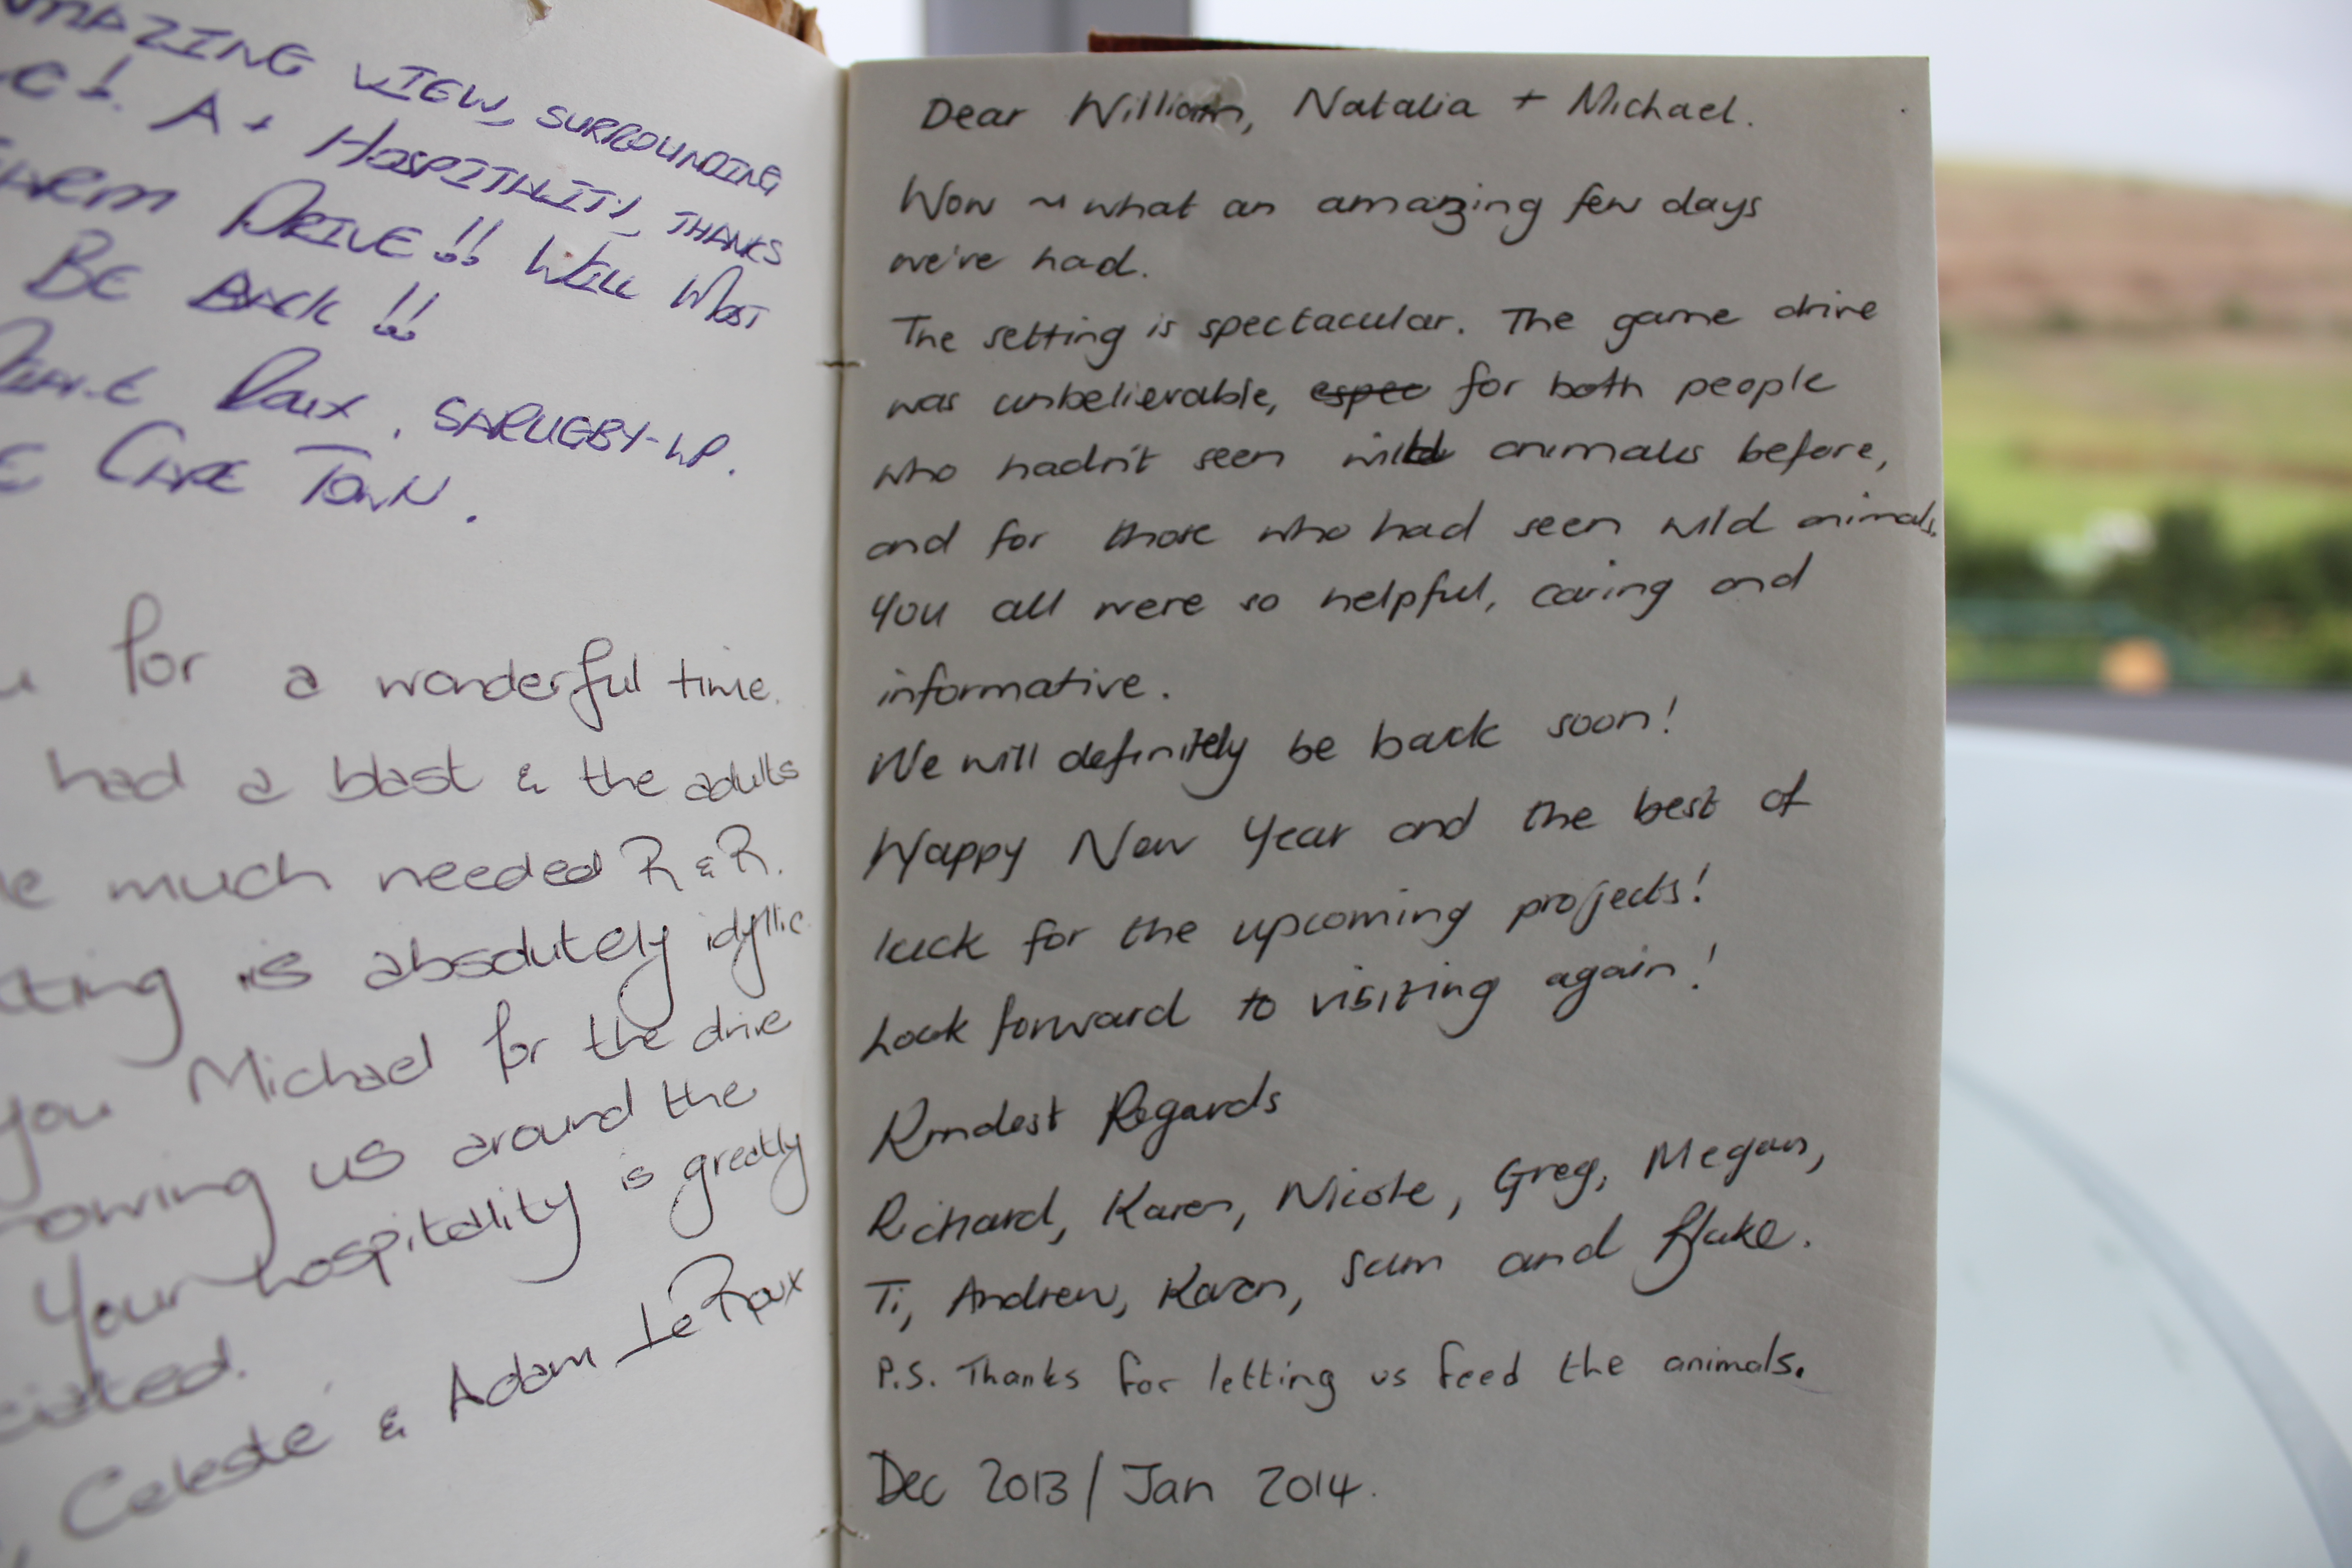 AMAZING VIEW, SURROUNDING
A+ HOSPITALITY, THANKS
DRIVE!! WILL MOST
BE BACK!!
Roux, SARUGBY-WP.
CAPE TOWN.
for a wonderful time.
had a blast & the adults
much needed R & R.
is absolutely idyllic
you Michael for the drive
us around the
Your hospitality is greatly
Celeste & Adam Le Roux
Dear William, Natalia + Michael.
Wow ~ what an amazing few days
we've had.
The setting is spectacular. The game drive
was unbelievable, espec for both people
who hadn't seen wild animals before,
and for those who had seen wild animals.
You all were so helpful, caring and
informative.
We will definitely be back soon!
Happy New Year and the best of
luck for the upcoming projects!
Look forward to visiting again!
Kindest Regards
Richard, Karen, Nicole, Greg, Megan,
Ti, Andrew, Karen, Sam and Blake.
P.S. Thanks for letting us feed the animals.
Dec 2013 / Jan 2014.